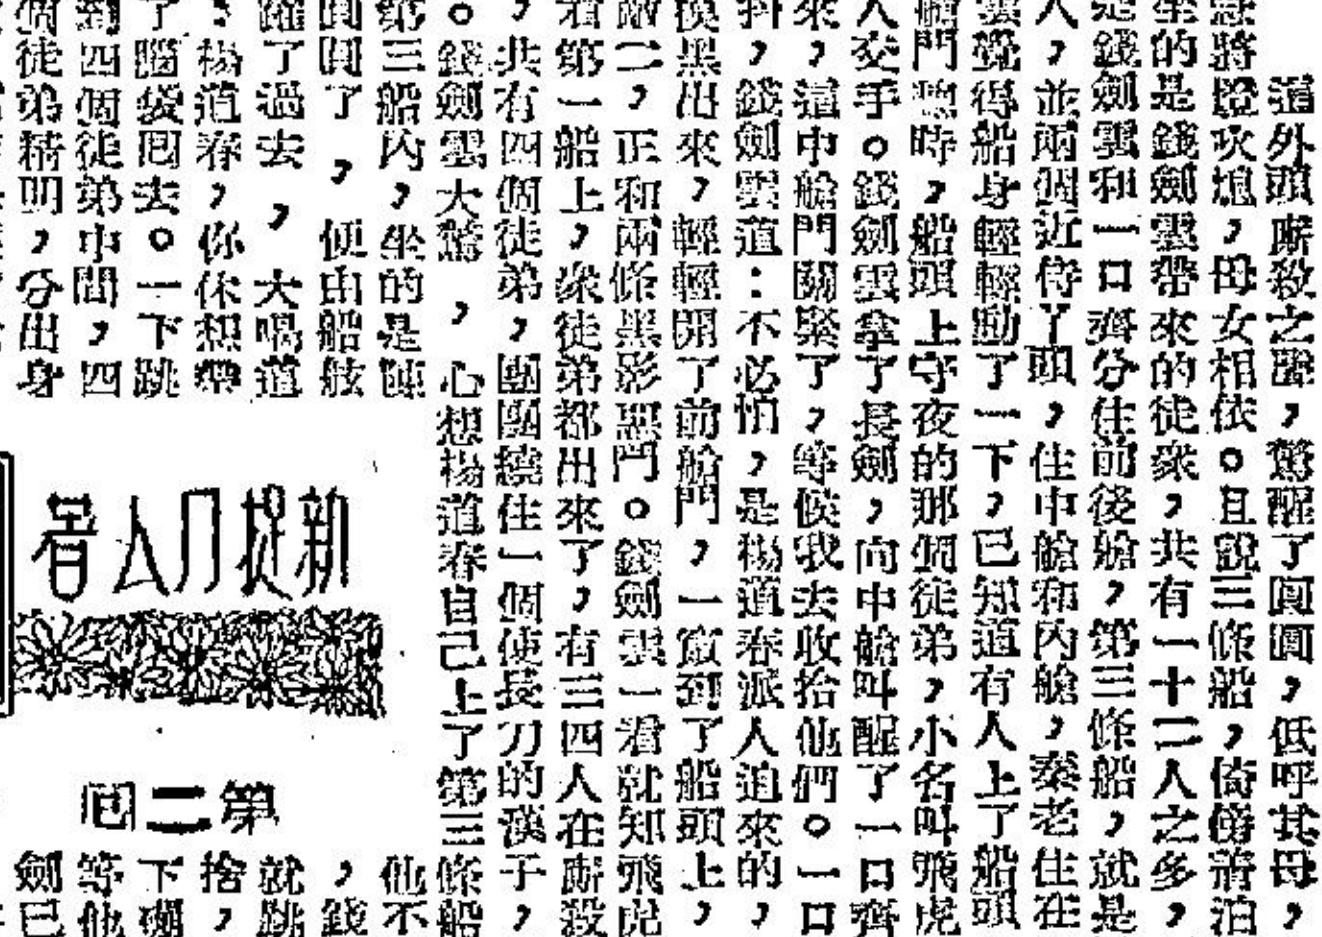 這外頭厮殺之聲，驚醒了圓圓，低呼其母，
將燈吹熄，母女相依。且說三條船，倚傍着泊
坐的是錢劍雲帶來的徒衆，共有一十二人之多，
是錢劍雲和一口齊分住前後艙，第三條船，就是
人，並兩個近侍丫頭，住中艙和內艙，秦老住在
雲覺得船身輕輕動了一下，已知道有人上了船頭
艙門聽時，船頭上守夜的那個徒弟，小名叫飛虎
人交手。錢劍雲拿了長劍，向中艙叫醒了一口齊
來，這中艙門關緊了，等候我去收拾他們。一口
抖，錢劍雲道：不必怕，是楊道春派人追來的，
換黑出來，輕輕開了前艙門，一竄到了船頭上，
敵二，正和兩條黑影惡鬥。錢劍雲一看就知飛虎
看第一船上，衆徒弟都出來了，有三四人在廝殺
，共有四個徒弟，團團繞住一個使長刀的漢子，
。錢劍雲大驚，心想楊道春自己上了第三條船
第三船內，坐的是陳
圓圓了，便由船舷
躍了過去，大喝道
：楊道春，你休想帶
了腦袋囘去。一下跳
到四個徒弟中間，四
個徒弟精明，分出身
新捉刀人著
第二囘
他不
，錢
就跳
捨，
下
等他
劍已